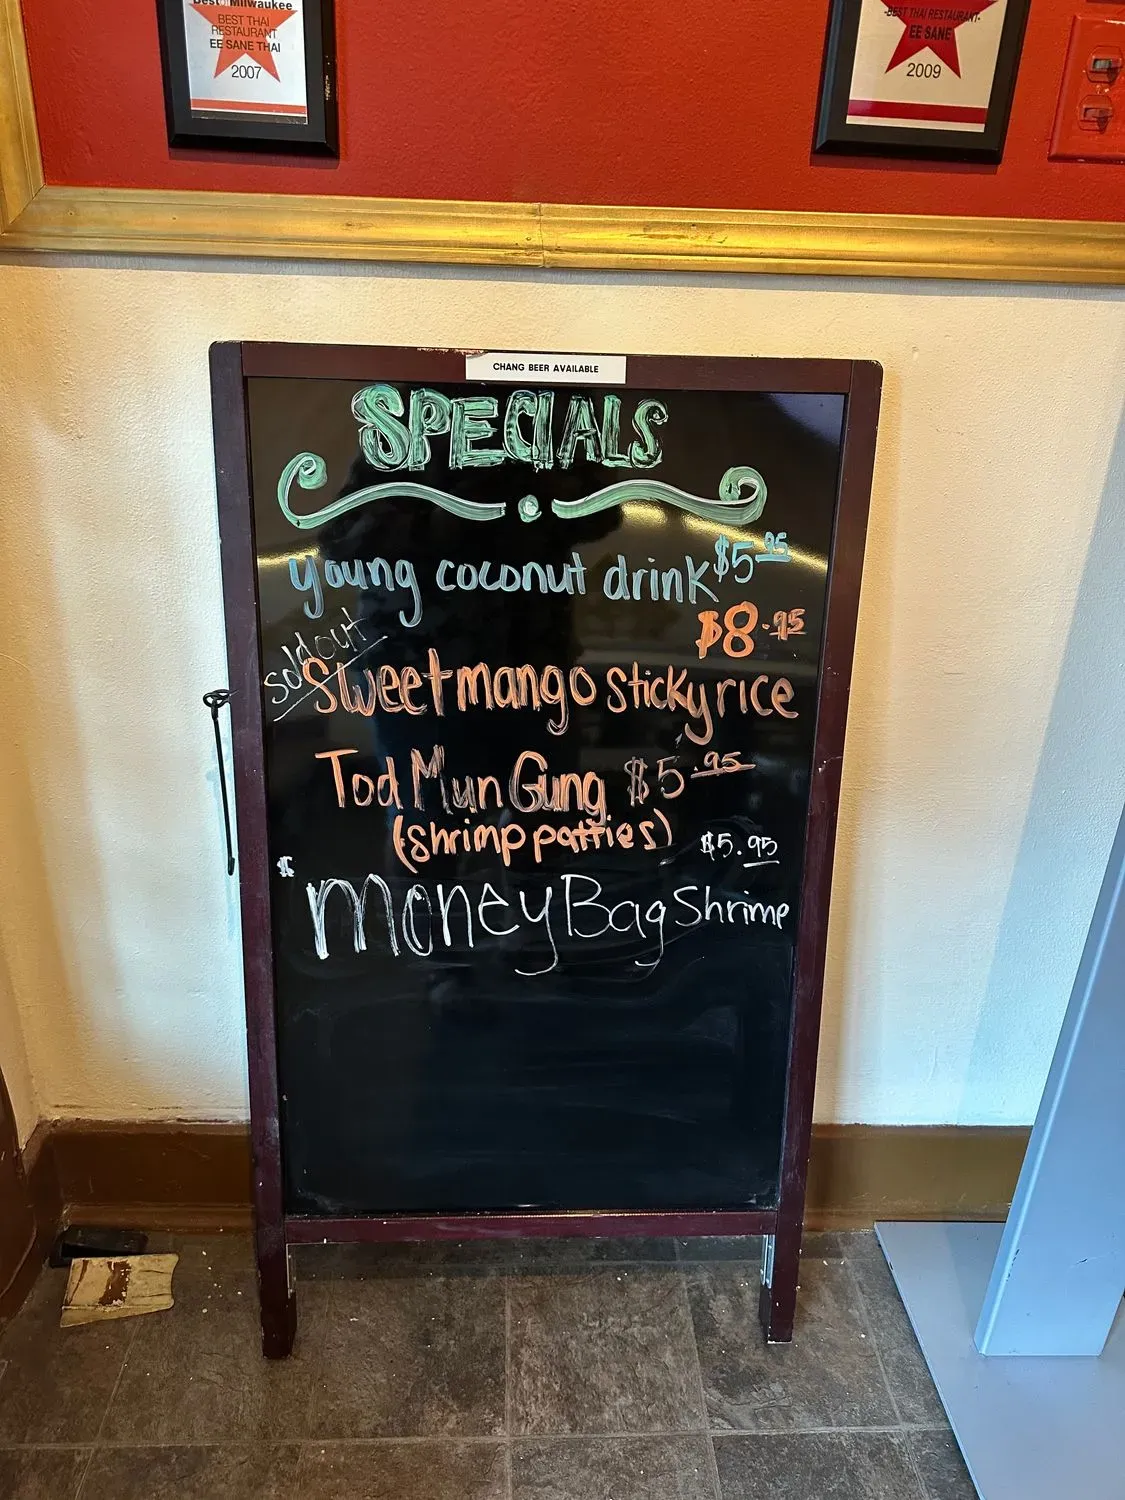 Best of Milwaukee
BEST THAI
RESTAURANT
EE SANE THAI
2007
-BEST THAI RESTAURANT-
EE SANE
2009
CHANG BEER AVAILABLE
SPECIALS
young coconut drink $5.95
$8.95
sold out
Sweet mango sticky rice
Tod Mun Gung $5.95
(shrimp patties)
$5.95
$
Money Bag Shrimp